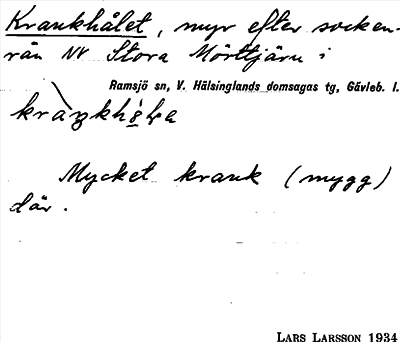 Krankhålet, myr efter socken-
rån NV Stora Mörttjärn i
Ramsjö sn, V. Hälsinglands domsagas tg, Gävleb. l.
Mycket krank (mygg)
där.
LARS LARSSON 1934